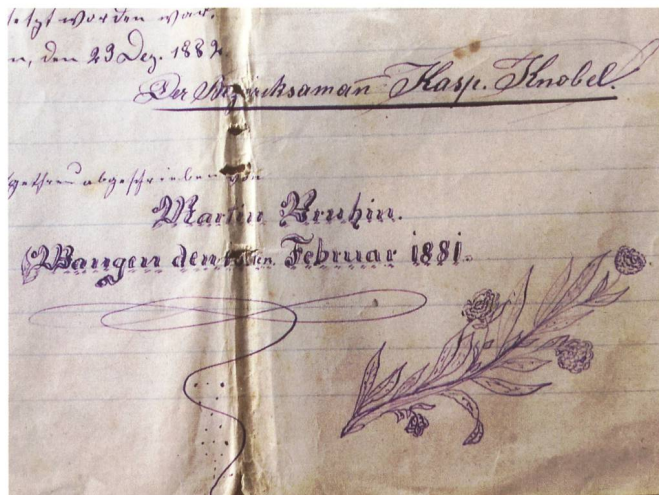 letzt worden war.
n, den 23 Dez. 188
Der Bezirksaman̅ Kasp. Knobel.
getreu abgeschrieben von
Martin Bruhin.
Wangen den ten Februar 1881.